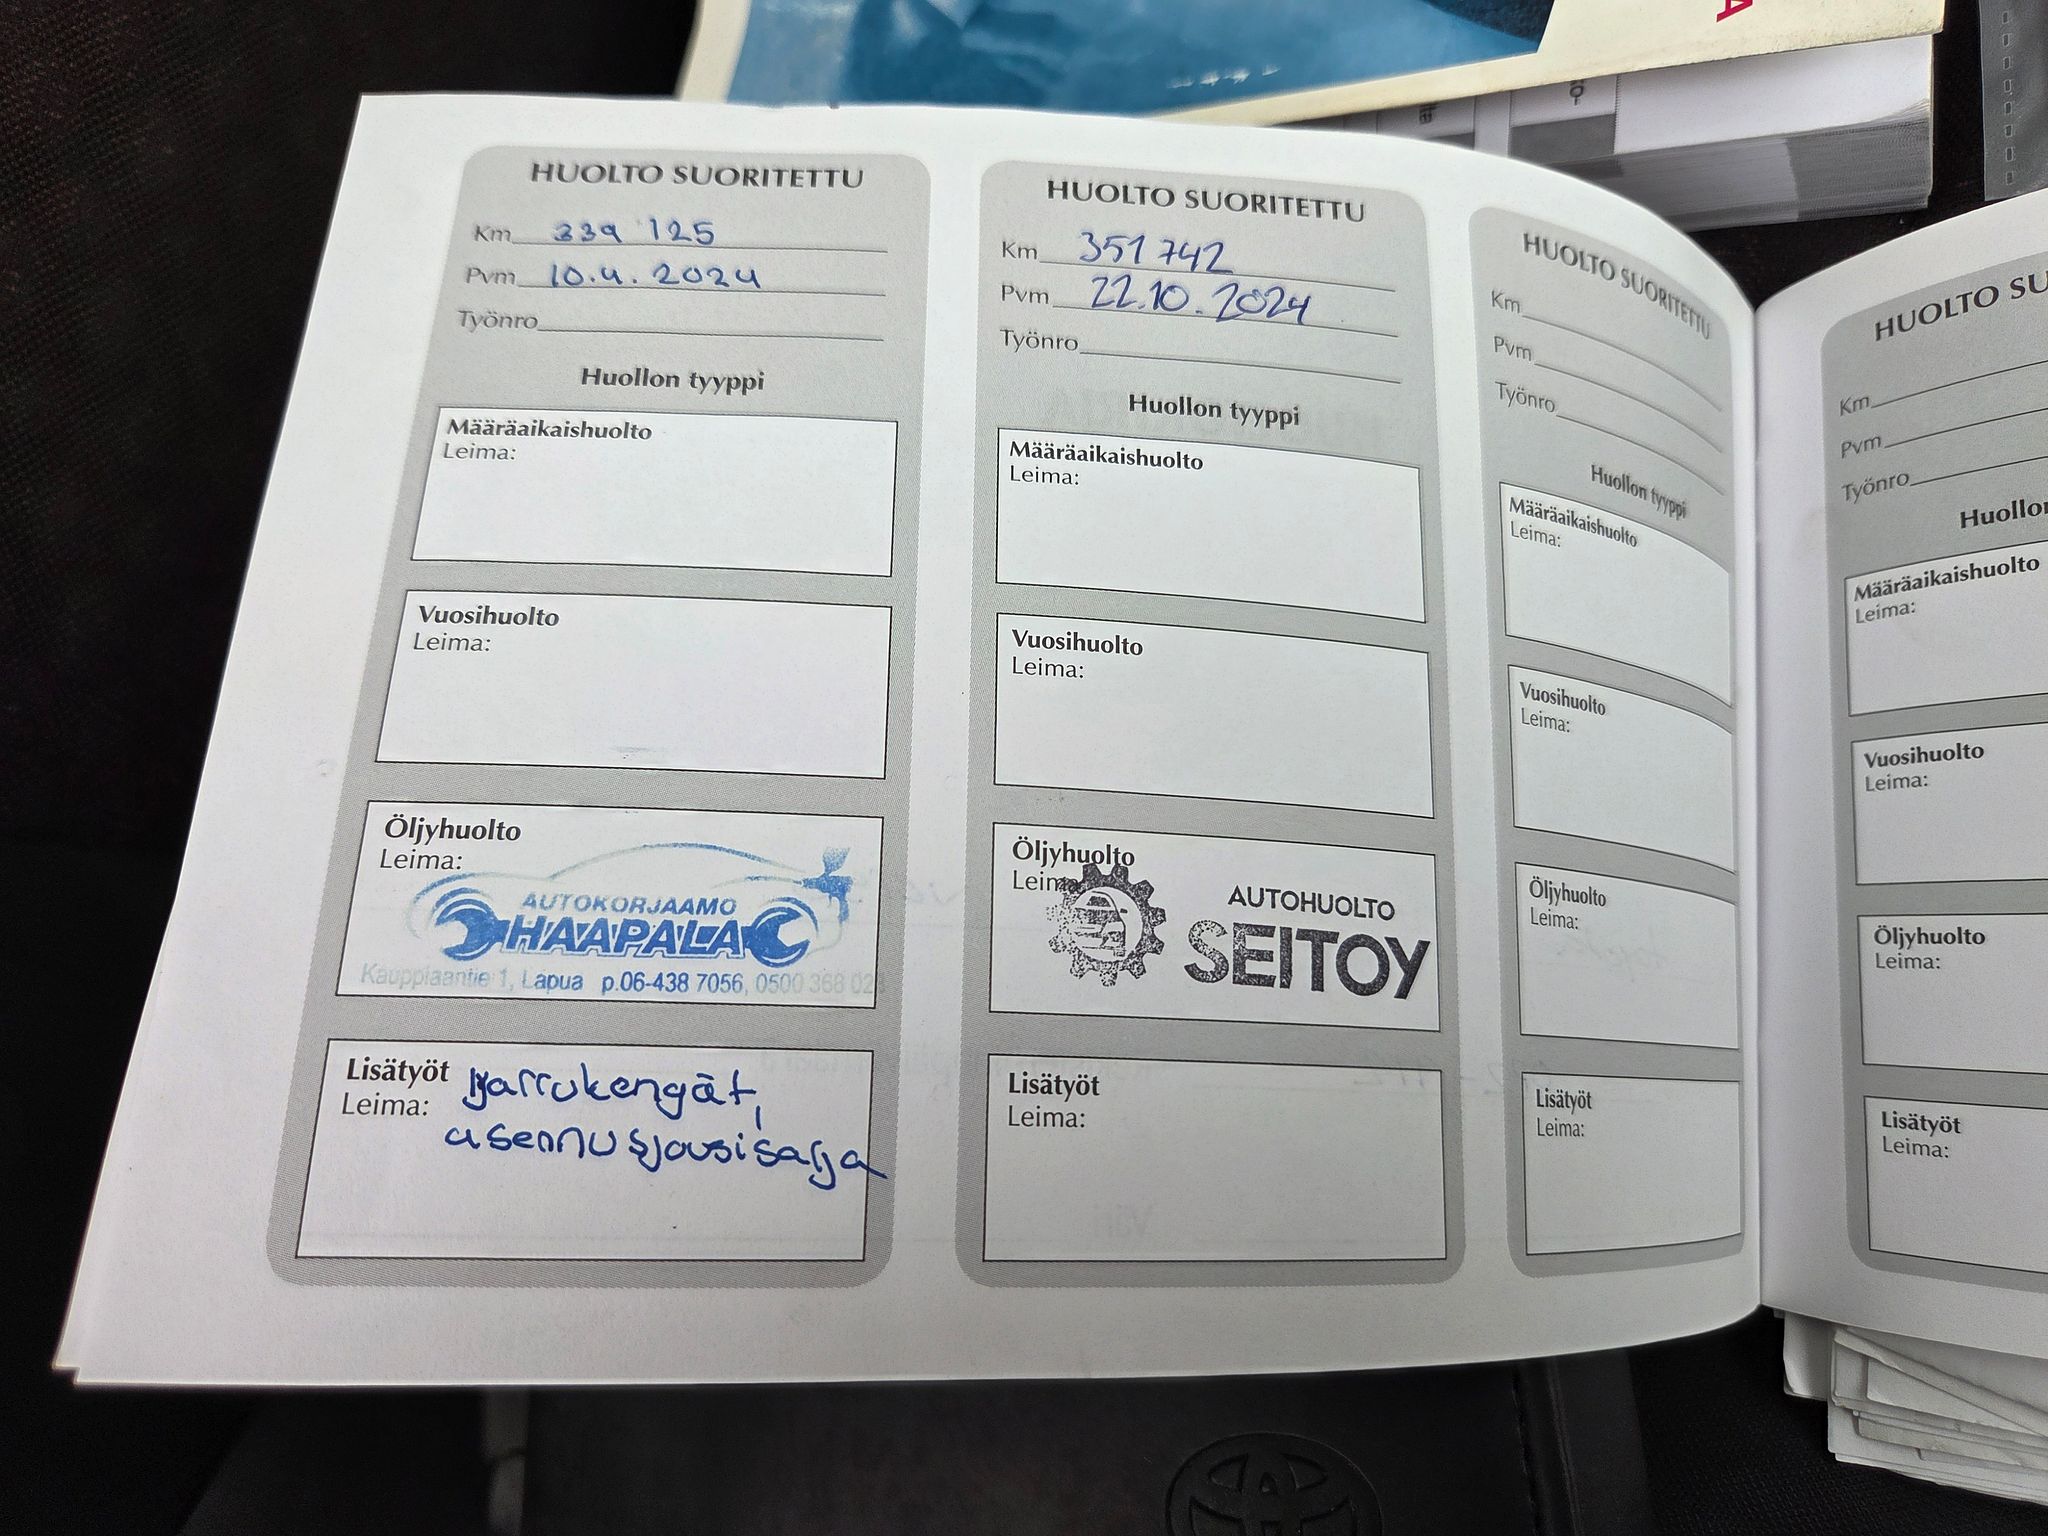 A
HUOLTO SUORITETTU
Km 339 125
Pvm 10.4.2024
Työnro
Huollon tyyppi
Määräaikaishuolto
Leima:
Vuosihuolto
Leima:
Öljyhuolto
Leima:
AUTOKORJAAMO
HAAPALA
Kauppiaantie 1, Lapua p.06-438 7056, 0500 368 02
Lisätyöt jarrukengät,
Leima: asennusjousisarja
HUOLTO SUORITETTU
Km 351 742
Pvm 22.10.2024
Työnro
Huollon tyyppi
Määräaikaishuolto
Leima:
Vuosihuolto
Leima:
Öljyhuolto
Leima:
AUTOHUOLTO
SEITOY
Lisätyöt
Leima:
HUOLTO SUORITETTU
Km
Pvm
Työnro
Huollon tyyppi
Määräaikaishuolto
Leima:
Vuosihuolto
Leima:
Öljyhuolto
Leima:
Lisätyöt
Leima:
HUOLTO SU
Km
Pvm
Työnro
Huollon
Määräaikaishuolto
Leima:
Vuosihuolto
Leima:
Öljyhuolto
Leima:
Lisätyöt
Leima: